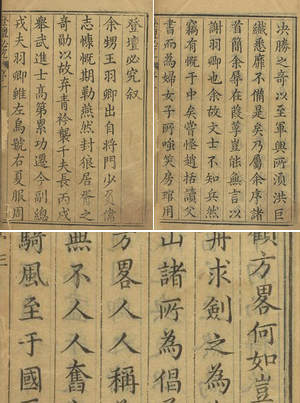 登壇必究叙
余甥王羽卿出自將門少負偉
志慷慨期勒燕然封狼居胥之
奇勛以故弃青衿襲千夫長丙戌
舉武進士高第累功遷今副總
戎夫羽卿雖左烏號右夏服周
决勝之奇以至軍輿所須洪巨
纖悉靡不備是矣乃屬余序諸
首簡余辱在葭莩豈能無言以
謝羽卿也余故文士不知兵然
竊有慨于中嘗怪趙括讀父
書而為婦女子所嗤笑房琯用
顧方畧何如豈
舟求劍之為
山諸所為倡
方畧人人稱
無不人人奮
騎風至于國
三